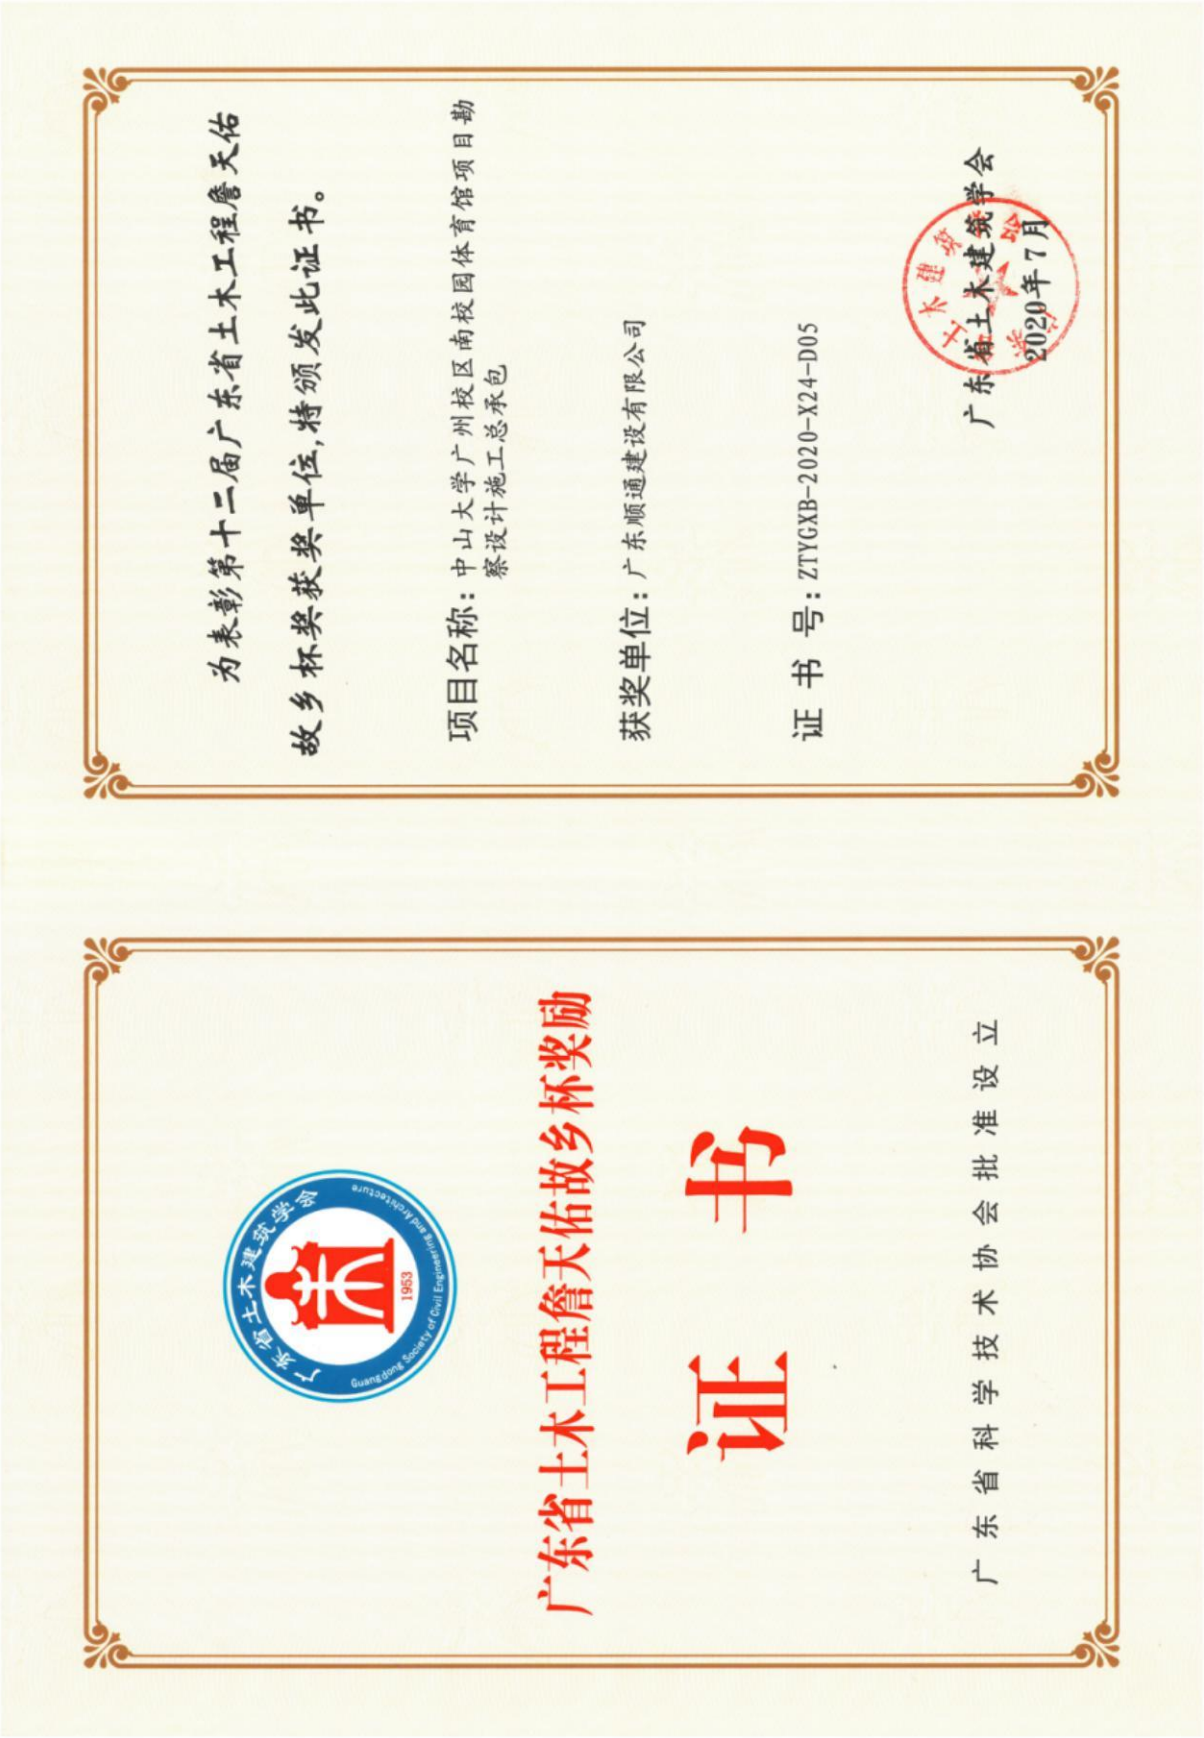 广东省土木建筑学会
Guangdong Society of Civil Engineering and Architecture
1953
广东省土木工程詹天佑故乡杯奖励
证书
广东省科学技术协会批准设立
为表彰第十二届广东省土木工程詹天佑
故乡杯奖获奖单位,特颁发此证书。
项目名称:中山大学广州校区南校园体育馆项目勘
察设计施工总承包
获奖单位:广东顺通建设有限公司
证 书 号:ZTYGXB-2020-X24-D05
广东省土木建筑学会
2020年7月